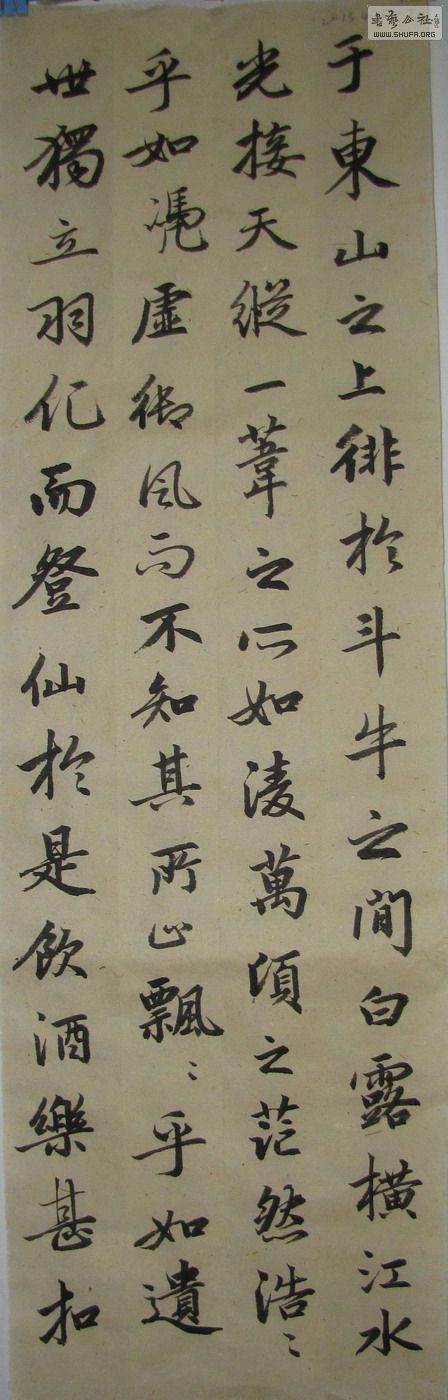 于東山之上徘於斗牛之間白露橫江水
光接天縱一葦之所如凌萬頃之茫然浩〻
乎如凴虛御風而不知其所止飄〻乎如遺
世獨立羽化而登仙於是飲酒樂甚扣
書藝公社
WWW.SHUFA.ORG